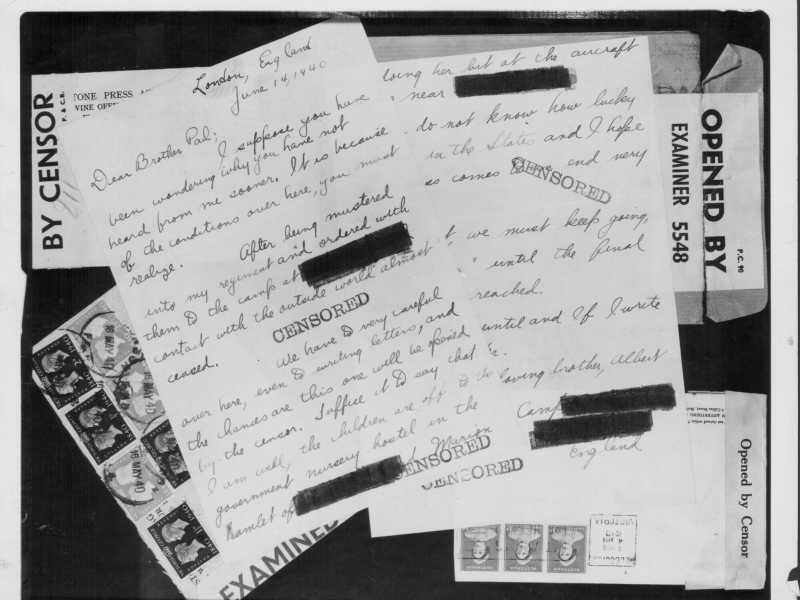 BY CENSOR
P. & C.B.
TONE PRESS
VINE OFF
London, England
June 14, 1940
Dear Brother Pal:
I suppose you have
been wondering why you have not
heard from me sooner. It is because
of the conditions over here, you must
realize.
After being mustered
into my regiment and ordered with
them to the camp at
contact with the outside world almost
ceased.
CENSORED
We have to very careful
over here, even to writing letters, and
the chances are this one will be opened
by the censor. Suffice it to say that
I am well, the children are off to the
government nursery hostel in the
hamlet of
Marion
loing her bit at the aircraft
near
do not know how lucky
in the States and I hope
as comes to end very
CENSORED
we must keep going,
until the final
reached.
until and if I write
loving brother, Albert
Camp
England
CENSORED
CENSORED
OPENED BY
EXAMINER 5548
P.C. 90
Opened by Censor
EXAMINER
16 MAY 40
MAY 40
16 MAY 40
VICTORIA